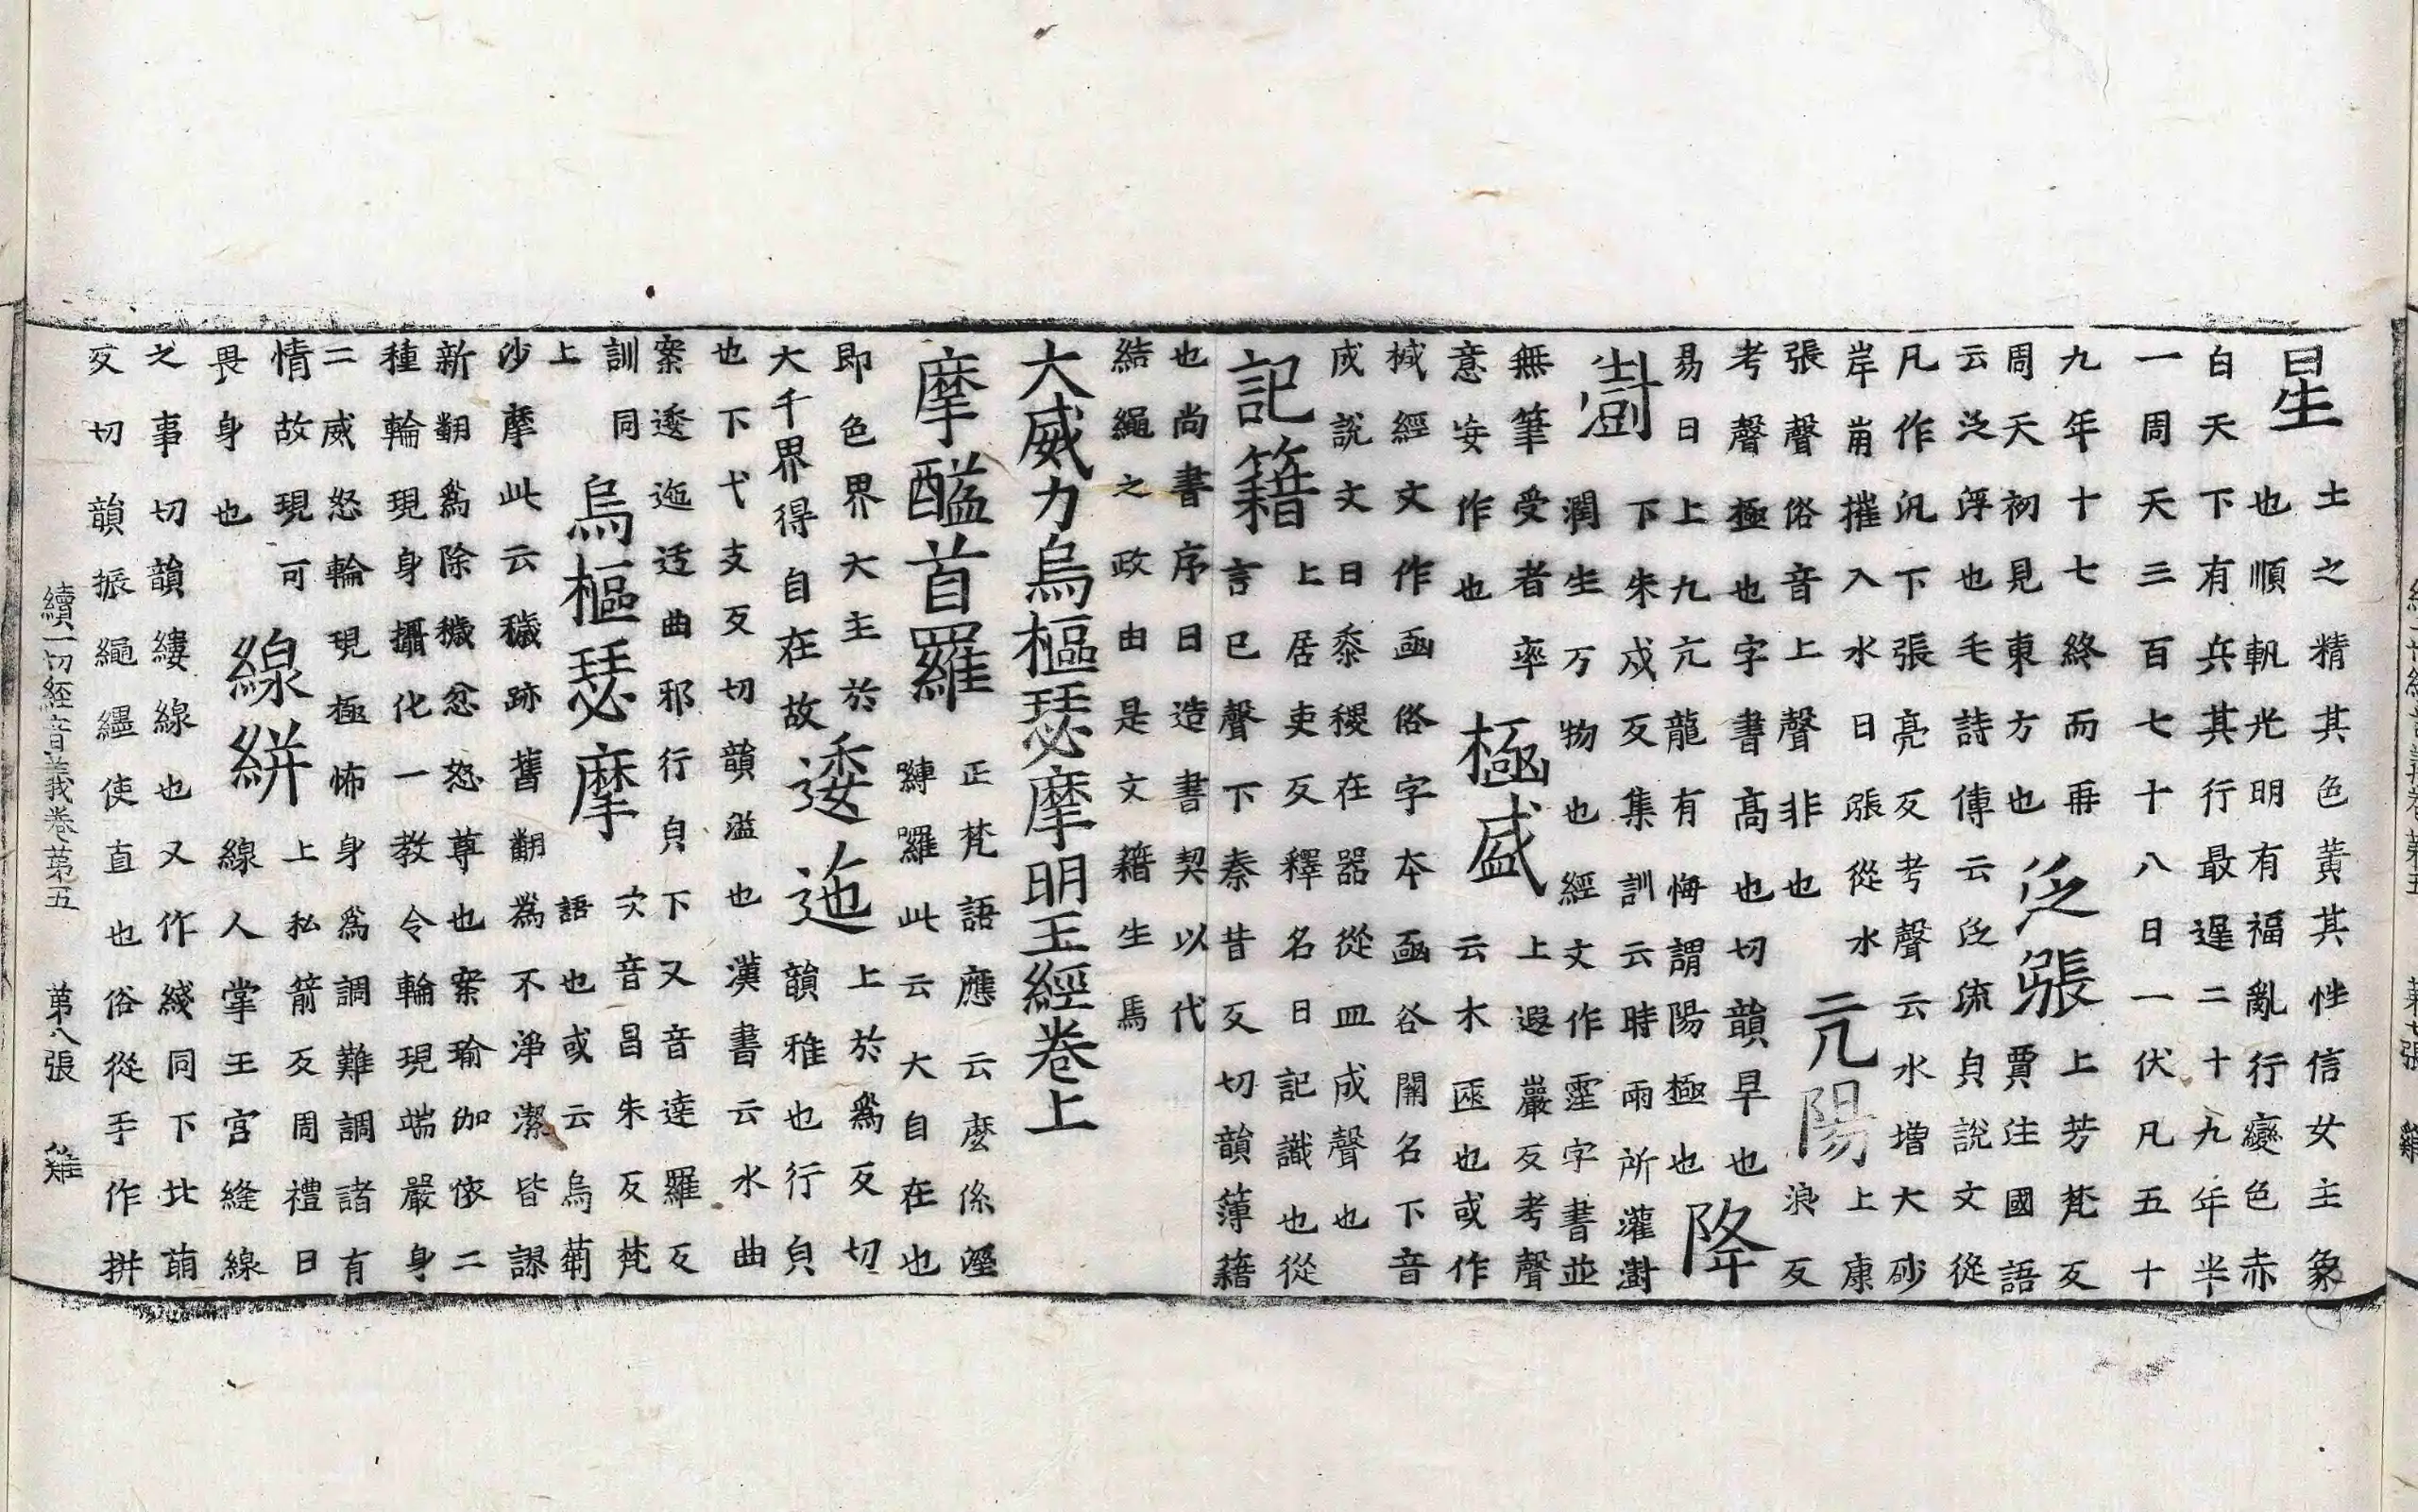 星
土之精其色黃其性信女主象
也順軌光明有福亂行變色赤
白天下有兵其行最遲二十九年半
一周天三百七十八日一伏凡五十
九年十七終而再
周天初見東方也
泛漲
上芳梵反
賈注國語
云泛浮也毛詩傳云泛流皃說文從
凡作汎下張亮反考聲云水增大砂
岸崩摧入水曰漲從水
張聲俗音上聲非也
亢陽
上康
浪反
考聲極也字書高也切韻旱也
易曰上九亢龍有悔謂陽極也
降
澍
下朱戍反集訓云時雨所灌澍
潤生万物也經文作霔字書並
無筆受者率
意安作也
極盛
上遐巖反考聲
云木匧也或作
椷經文作凾俗字本凾谷關名下音
成說文曰黍稷在器從皿成聲也
記籍
上居吏反釋名曰記識也從
言巳聲下秦昔反切韻簿籍
也尚書序曰造書契以代
結繩之政由是文籍生焉
大威力烏樞瑟摩明王經卷上
摩醯首羅
正梵語應云麼係溼
嚩囉此云大自在也
即色界天主於
大千界得自在故
逶迤
上於為反切
韻雅也行皃
也下弋支反切韻溢也漢書云水曲
案逶迤适曲邪行皃下又音達羅反
訓同
上
烏樞瑟摩
次音昌朱反梵
語也或云烏芻
沙摩此云穢跡舊翻為不淨潔皆謬
新翻為除穢忿怒尊也案瑜伽依二
種輪現身攝化一教令輪現端嚴身
二威怒輪現極怖身為調難調諸有
情故現可
畏身也
線絣
上私箭反周禮曰
線人掌王宮縫線
之事切韻縷線也又作綫同下北萌
反切韻振繩繮使直也俗從手作拼
續一切經音義卷第五 第八張 雞